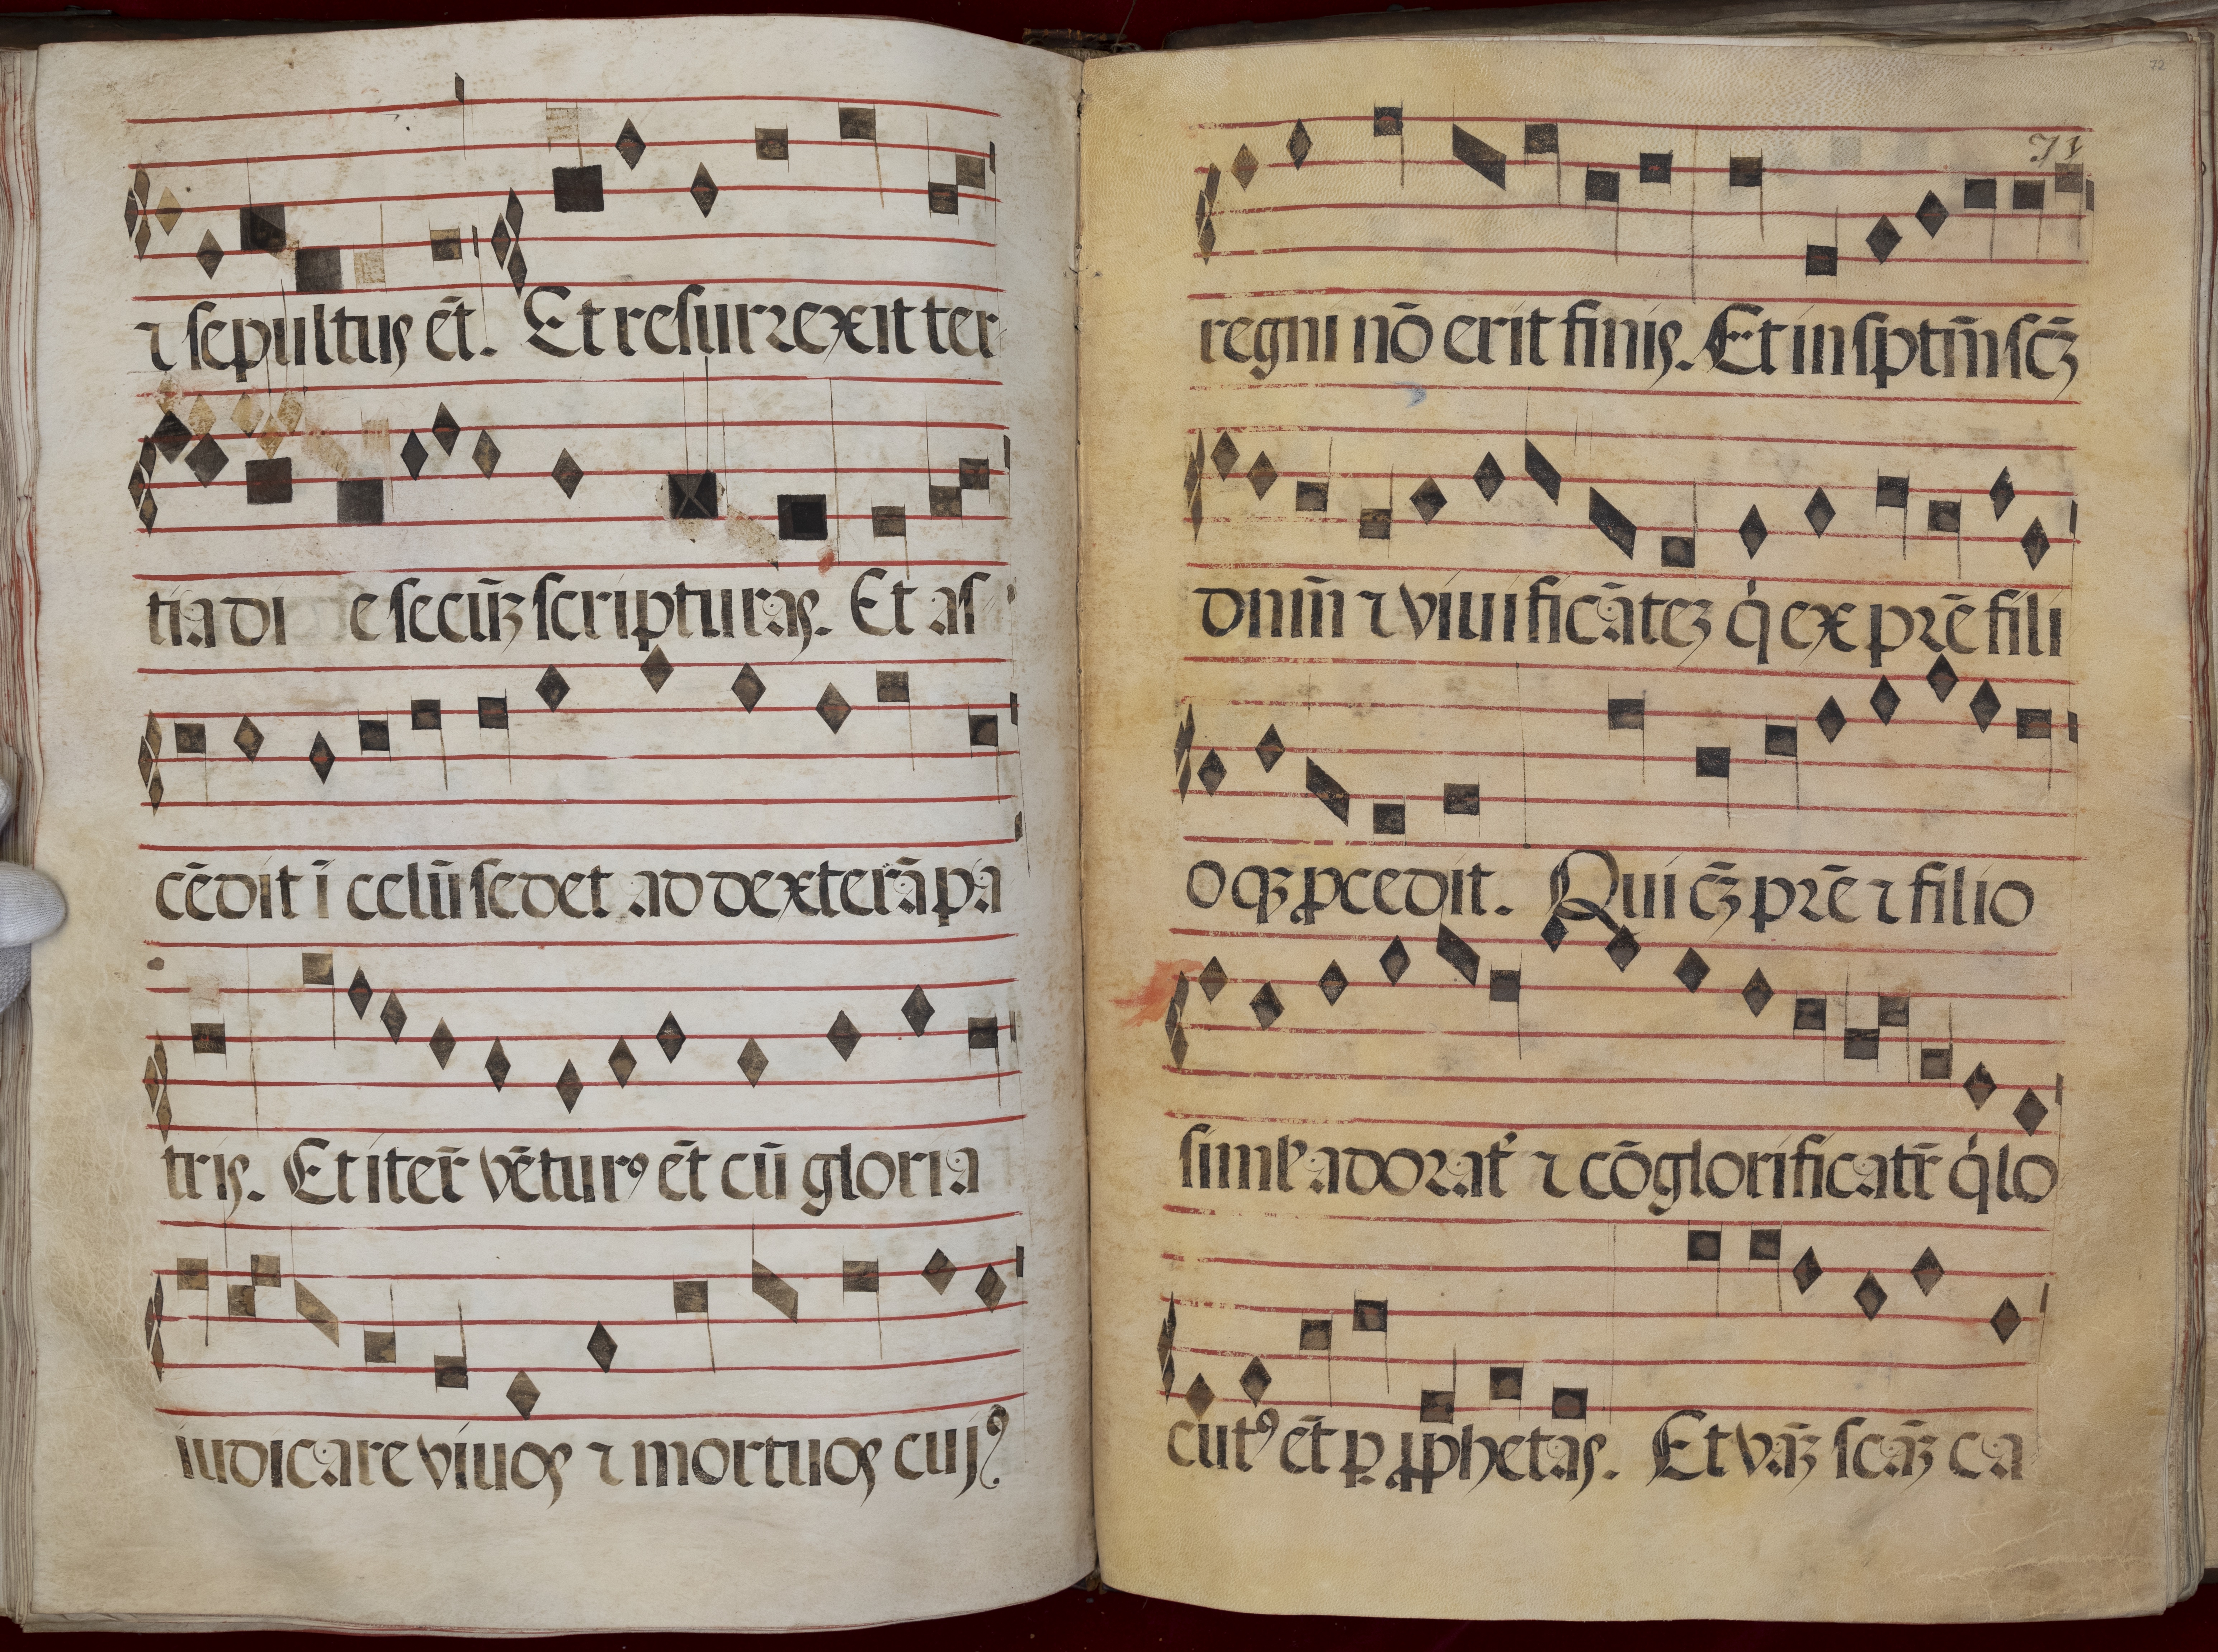 ⁊ sepultus ēt. Et resurrexit ter
tia di e secūȝ scripturas. Et as
cēdit ī celū sedet ad dexterā pa
tris. Et iter̄ vētur⁹ ēt cū gloria
iudicare viuos ⁊ mortuos cuj⁹
72
71
regni nō erit finis. Et in sptm̄ scȝ̄
dnm̄ ⁊ viuificāteȝ q̇ ex prē fili
oqȝ ꝓcedit. Qui cȝ̄ prē ⁊ filio
simlʼ adoratʼ ⁊ cōglorificatr̄ q̇ lo
cut⁹ ēt p ꝓphetas. Et vnāȝ scāȝ ca